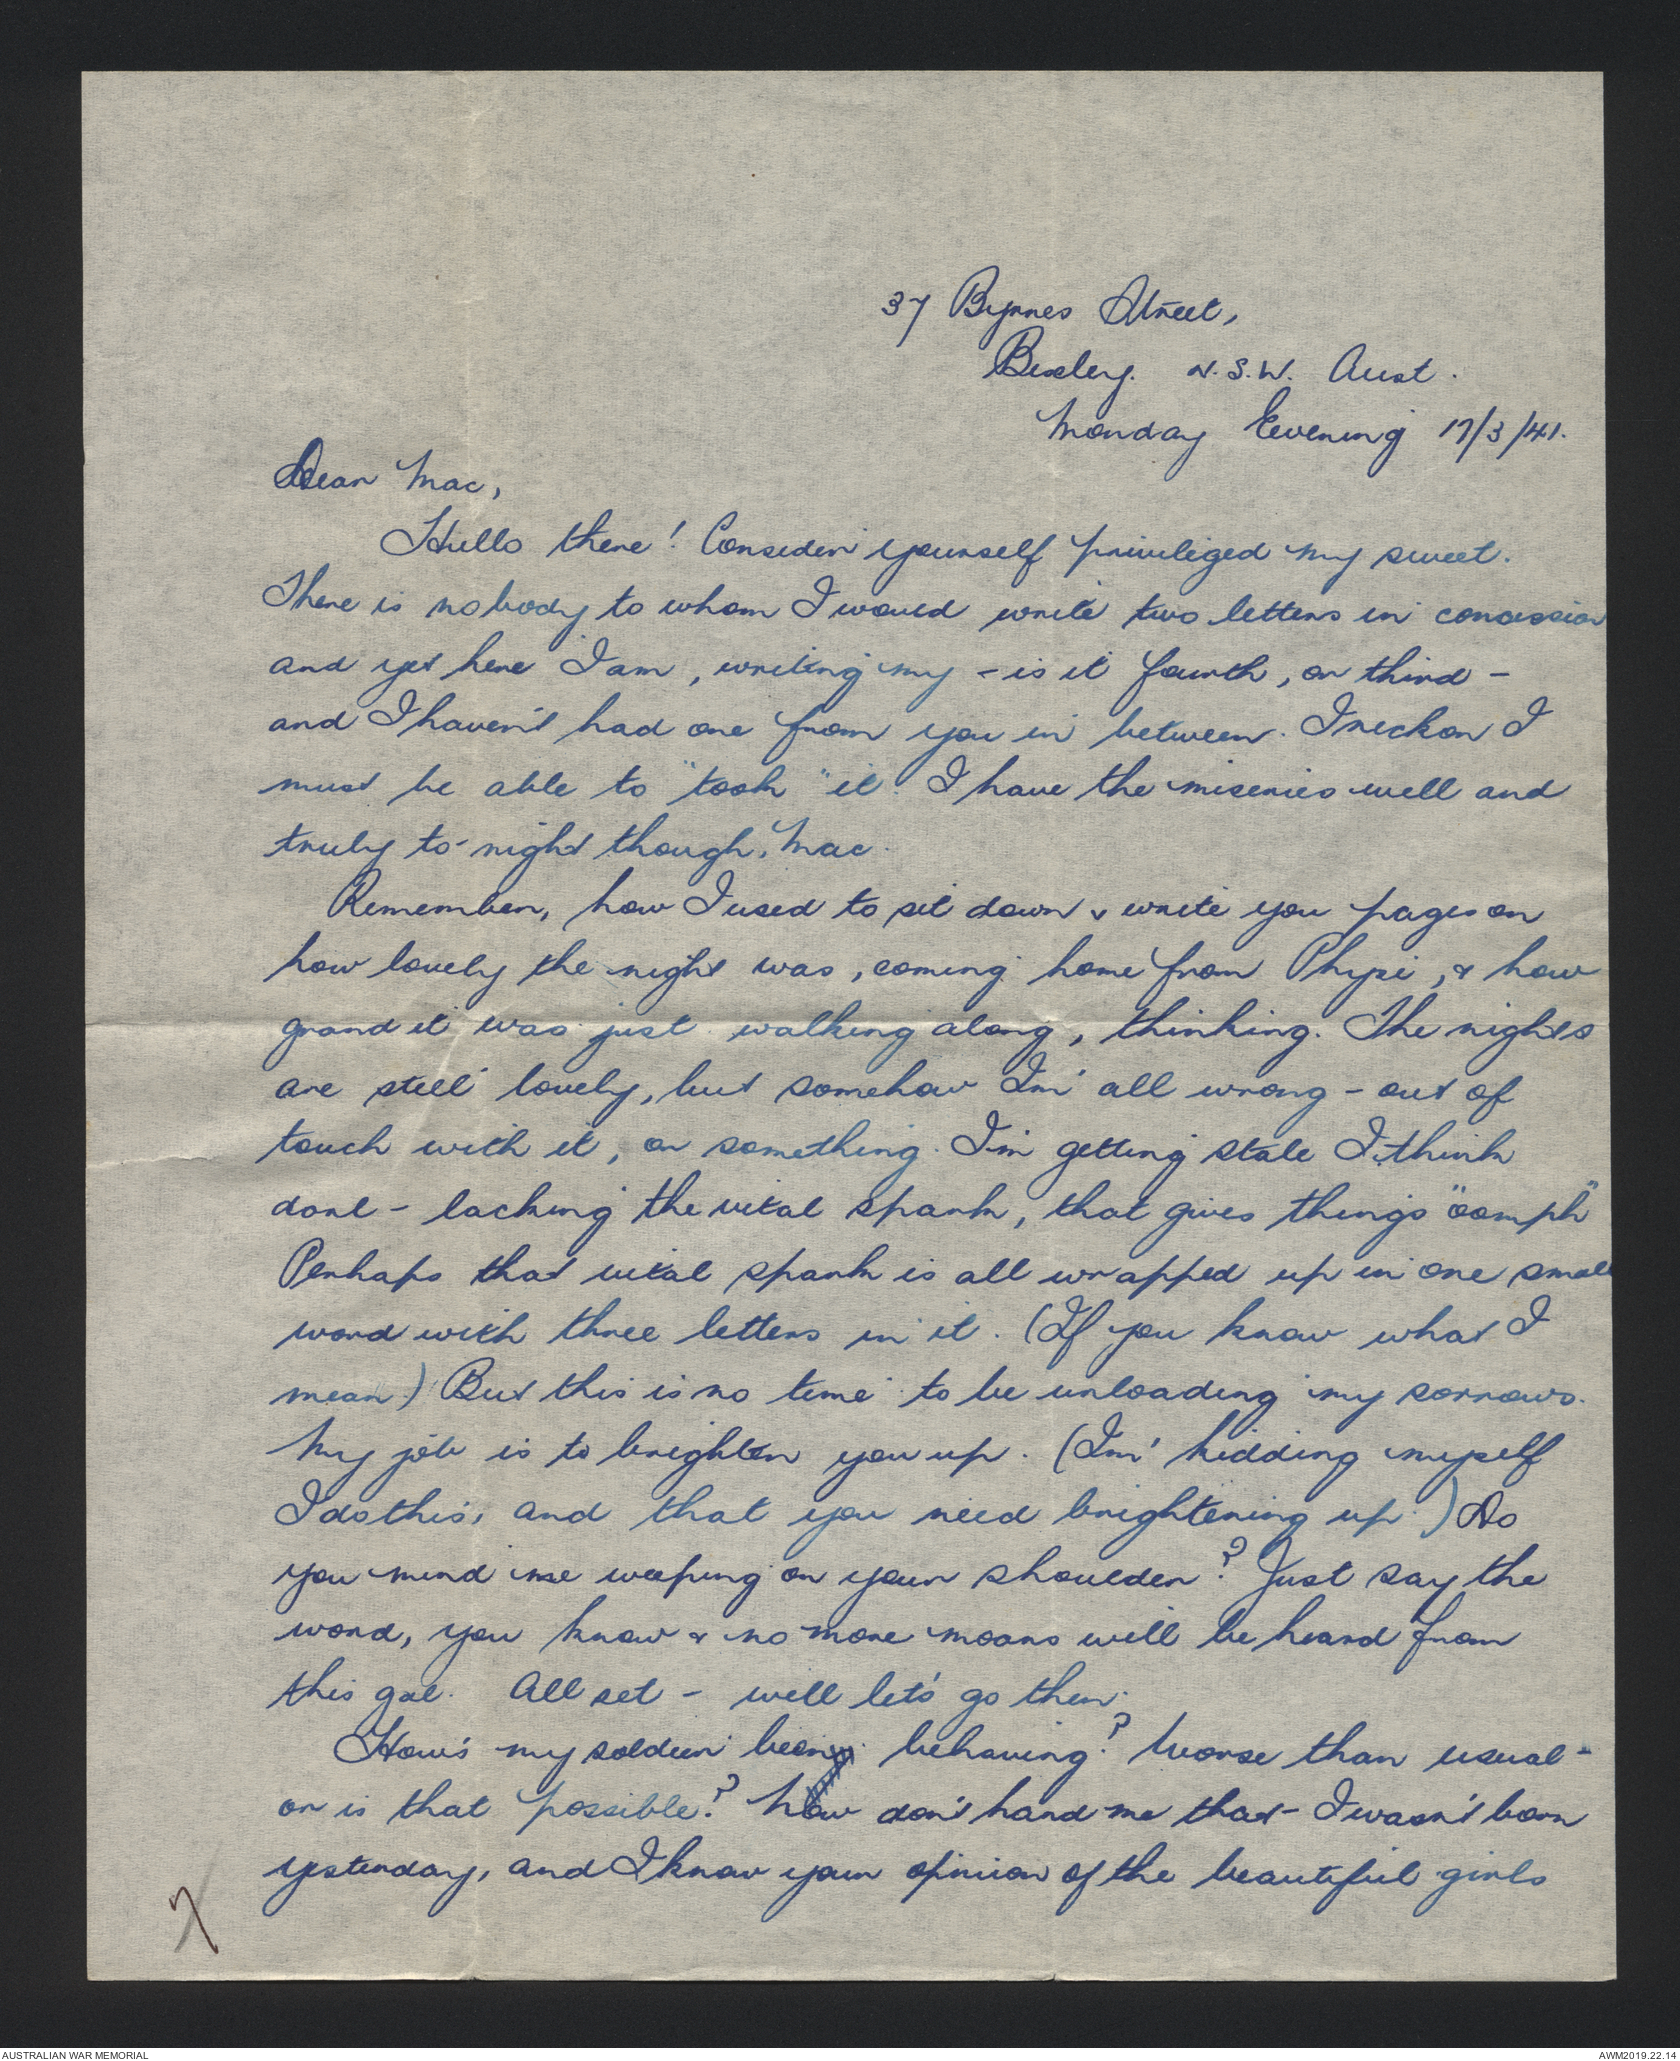 37 Byrnes Street,
Bexley. N.S.W. Aust.
Monday Evening 17/3/41.
Dear Mac,
Hullo there! Consider yourself priviliged my sweet.
There is nobody to whom I would write two letters in concession
and yet here I am, writing my - is it fourth, or third -
and I haven't had one from you in between. I reckon I
must be able to "took" it. I have the miseries well and
truly to-night though, Mac.
Remember, how I used to sit down & write you pages on
how lovely the night was, coming home from Physi, & how
grand it was just walking along, thinking. The nights
are still lovely, but somehow I'm all wrong - out of
touch with it, or something. I'm getting stale I think
darl - lacking the vital spark, that gives things "oomph"
Perhaps that vital spark is all wrapped up in one small
word with three letters in it. (If you know what I
mean.) But this is no time to be unloading my sorrows.
My job is to brighten you up. (I'm kidding myself
I do this, and that you need brightening up.) Do
you mind me weeping on your shoulder? Just say the
word, you know & no more moans will be heard from
this gal. All set - well let's go then.
How's my soldier been behaving? Worse than usual -
or is that possible? Now don't hand me that - I wasn't born
yesterday, and I know your opinion of the beautiful girls
7
AUSTRALIAN WAR MEMORIAL
AWM2019.22.14